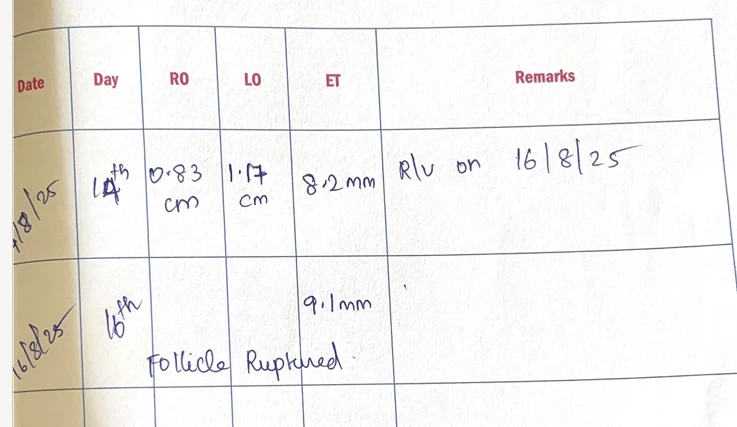 Date Day RO LO ET Remarks
/8/25 14th 0.83 cm 1.17 cm 8.2mm R/v on 16/8/25
16/8/25 16th 9.1mm
Follicle Ruptured.